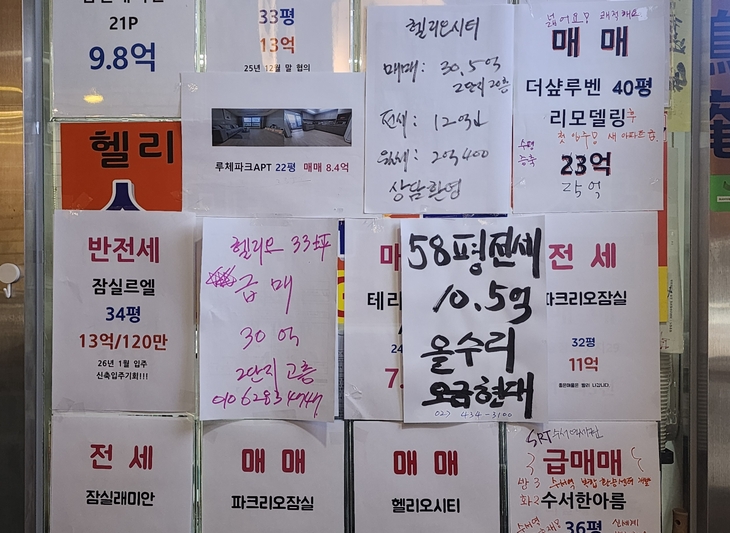 21P
9.8억
33평
13억
25년 12월 말 협의
루체파크APT 22평 매매 8.4억
헬리오시티
매매: 30.5억
2단지 고층
전세: 12억
월세: 2억 400
상담환영
넓어요!
매 매
더샵루벤 40평
리모델링후
첫 입주!
새 아파트
수평
증축
23억
25억
헬리
반전세
잠실르엘
34평
13억/120만
26년 1월 입주
신축입주기회!!!
헬리오 33坪
급매
30억
2단지 고층
매
테라
24
7.
58평전세
10.5억
올수리
오금현대
02) 434-3100
전 세
파크리오잠실
32평
11억
전 세
잠실래미안
매 매
파크리오잠실
매 매
헬리오시티
SRT
급매매
수서한아름
수서역
36평